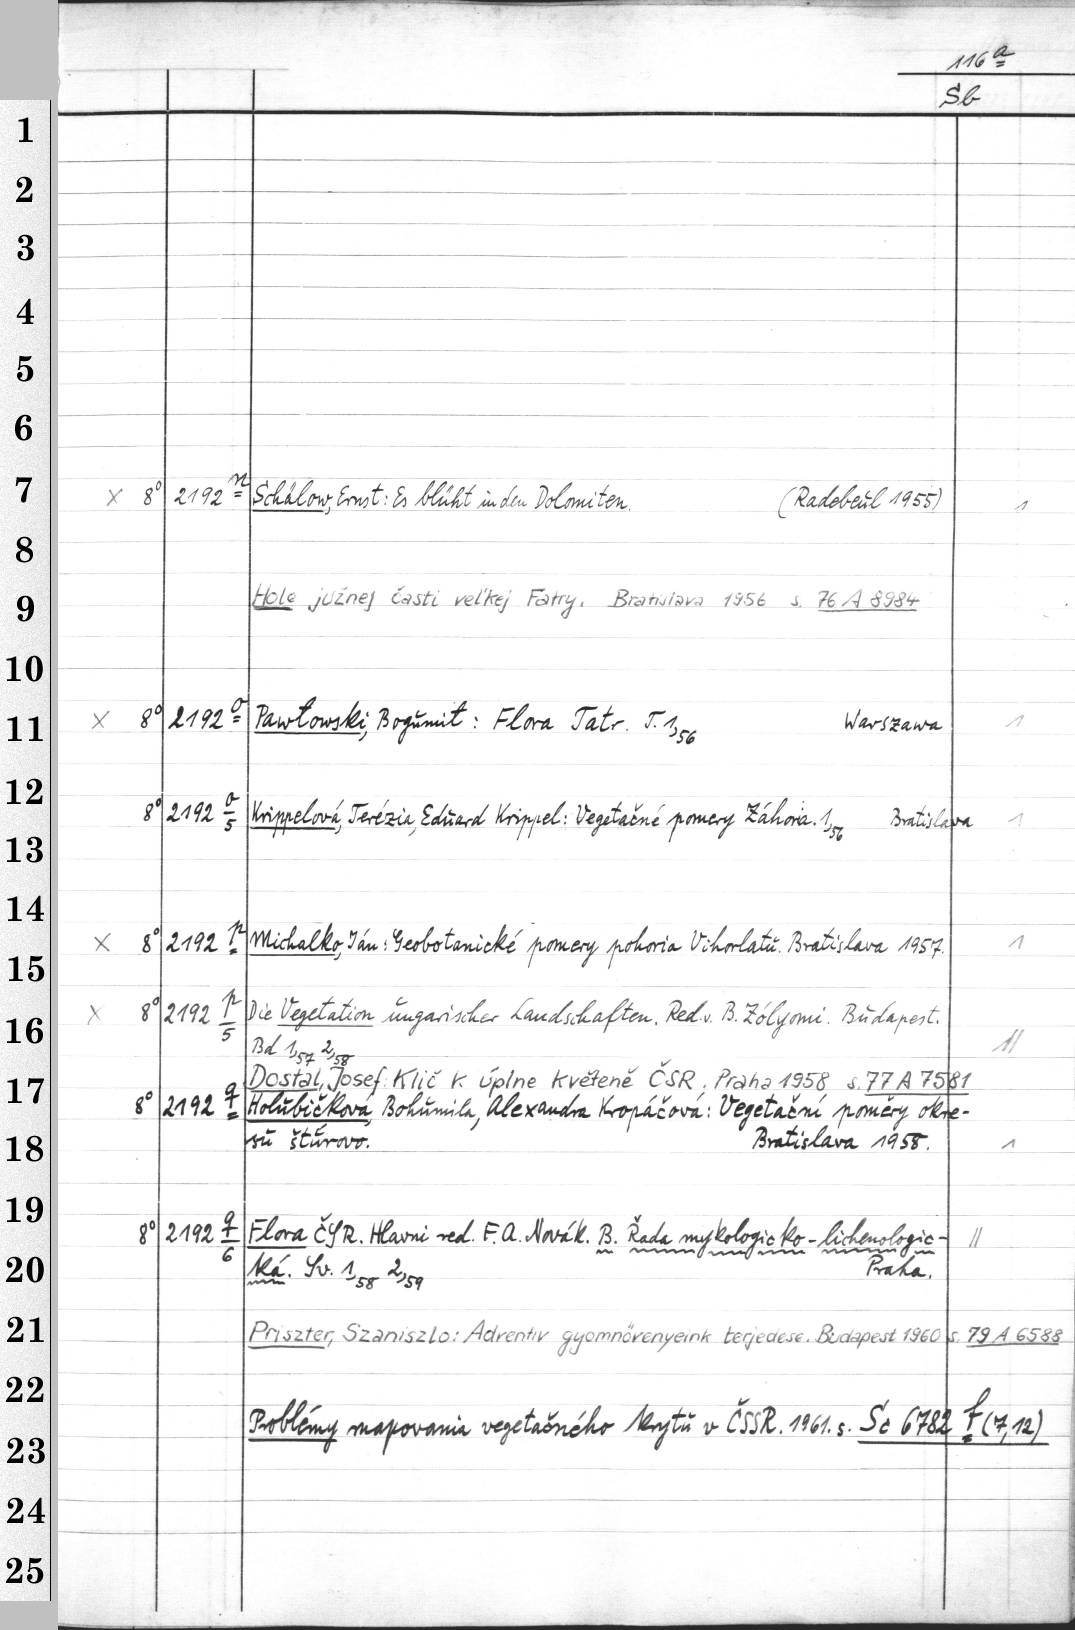 116 a
Sb
1
2
3
4
5
6
7 x 8° 2192 n Schalow, Ernst: Es blüht in den Dolomiten. (Radebeul 1955) 1
8
9 Hole južnej časti veľkej Fatry. Bratislava 1956 s. 76 A 8984
10
11 x 8° 2192 o Pawłowski, Bogumił: Flora Tatr. T. 1,56 Warszawa 1
12 8° 2192 o/5 Krippelová, Terézia, Eduard Krippel: Vegetačné pomery Záhoria. 1,56 Bratislava 1
13
14
15 x 8° 2192 p Michalko, Ján: Geobotanické pomery pohoria Vihorlatu. Bratislava 1957. 1
16 x 8° 2192 p/5 Die Vegetation ungarischer Landschaften. Red. v. B. Zólyomi. Budapest.
Bd 1,57 2,58 11
17 Dostal, Josef: Klič k úplne květeně ČSR. Praha 1958 s. 77 A 7581
8° 2192 q Holubičková, Bohumila, Alexandra Kropáčová: Vegetační poměry okre-
18 su štúrovo. Bratislava 1958. 1
19 8° 2192 q/6 Flora ČSR. Hlavni red. F. A. Novák. B. Řada mykologicko-lichenologic- 11
20 ká. Sv. 1,58 2,59 Praha.
21 Priszter, Szaniszlo: Adventiv gyomnövenyeink terjedese. Budapest 1960 s. 79 A 6588
22
23 Problémy mapovania vegetačného krytu v ČSSR. 1961. s. Sc 6782 f (7,12)
24
25